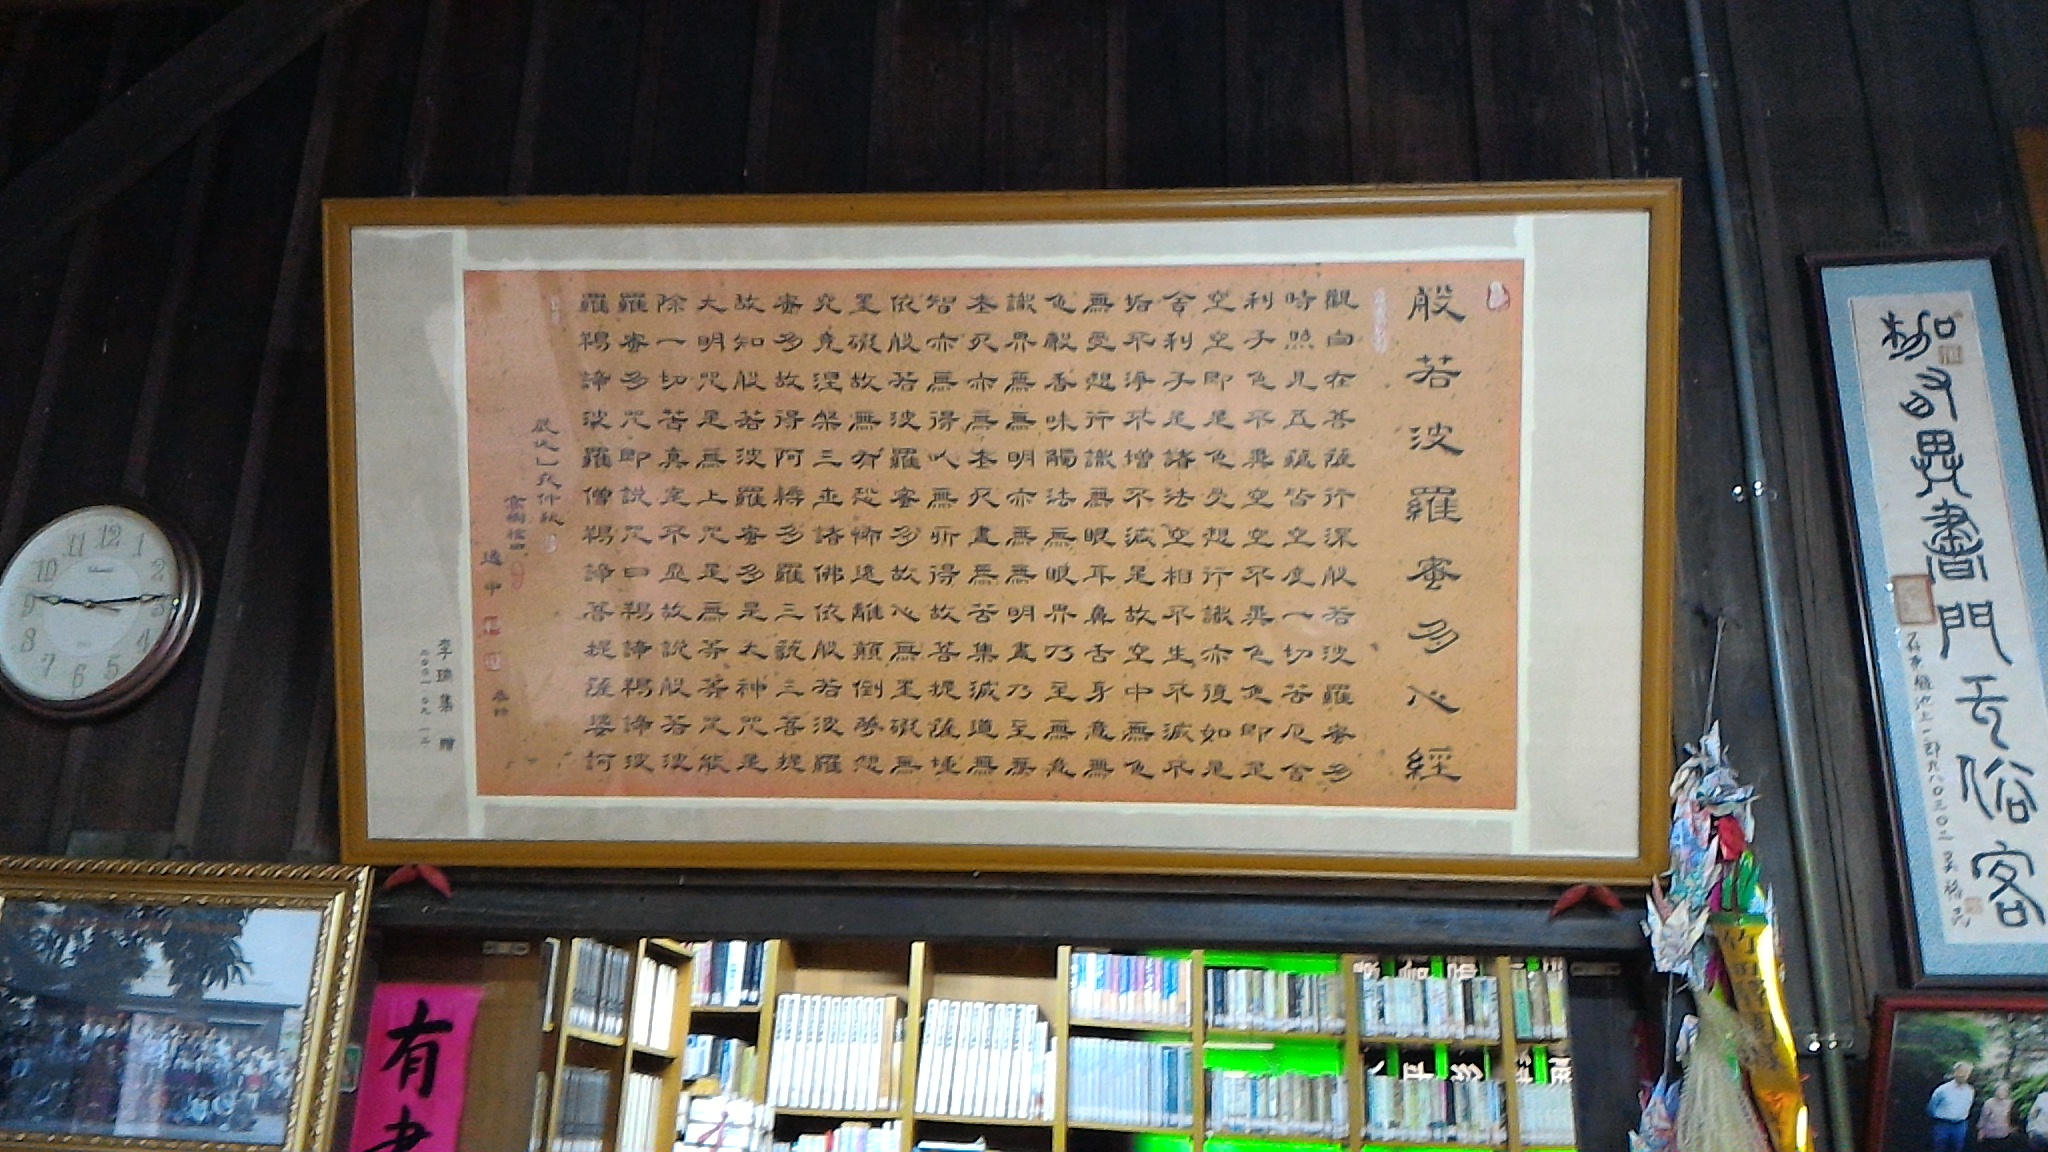 般若波羅蜜多心經
觀自在菩薩行深般若波羅蜜多
時照見五蘊皆空度一切苦厄舍
利子色不異空空不異色色即是
空空即是色受想行識亦復如是
舍利子是諸法空相不生不滅不
垢不淨不增不減是故空中無色
無受想行識無眼耳鼻舌身意無
色聲香味觸法無眼界乃至無意
識界無無明亦無無明盡乃至無
老死亦無老死盡無苦集滅道無
智亦無得以無所得故菩提薩埵
依般若波羅蜜多故心無罣礙無
罣礙故無有恐怖遠離顛倒夢想
究竟涅槃三世諸佛依般若波羅
蜜多故得阿耨多羅三藐三菩提
故知般若波羅蜜多是大神咒是
大明咒是無上咒是無等等咒能
除一切苦真實不虛故說般若波
羅蜜多咒即說咒曰揭諦揭諦波
羅揭諦波羅僧揭諦菩提薩婆訶
集 贈
書門无俗客
有書
竹田
12 1 2 3 4 5 6 7 8 9 10 11